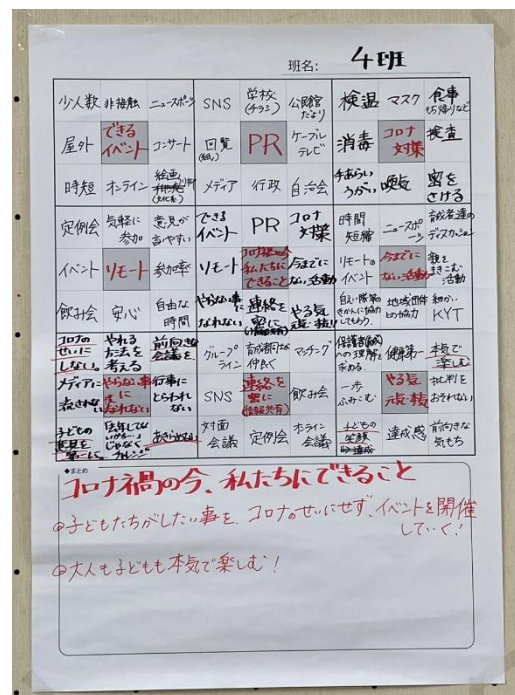 班名: 4班
少人数 非接触 ニュースポーツ SNS 学校(チラシ) 公民館だより 検温 マスク 食事
屋外 できるイベント コンサート 回覧 PR ケーブルテレビ 消毒 コロナ対策 検査
時短 オンライン 絵画 メディア 行政 自治会 手あらいうがい 換気 密をさける
定例会 気軽に参加 意見が言いやすい できるイベント PR コロナ対策 時間短縮 ニュースポーツ 育成者達のディスカッション
イベント リモート 参加率 リモート コロナ禍の今私たちにできること 今までにない活動 リモートのイベント 今までにない活動 親をまきこむ活動
飲み会 安心 自由な時間 やらない事になれない 連絡を密に やる気 地域団体との協力 KYT
コロナのせいにしない。 やれる方法を考える 前向きな会議を。 グループライン 仲良く マッチング 理解を求める。 健康第一 本気で楽しむ
メディアに流されない やらない事になれない 行事にとらわれない SNS 連絡を密に(情報共有) 飲み会 一歩ふみこむ やる気 批判をおそれない
子どもの意見を第一に。 あきらめない 対面会議 定例会 オンライン会議 子どもの笑顔 達成感 前向きな気もち
◆まとめ
コロナ禍の今、私たちにできること
◎子どもたちがしたい事を、コロナのせいにせず、イベントを開催
していく!
◎大人も子どもも本気で楽しむ!